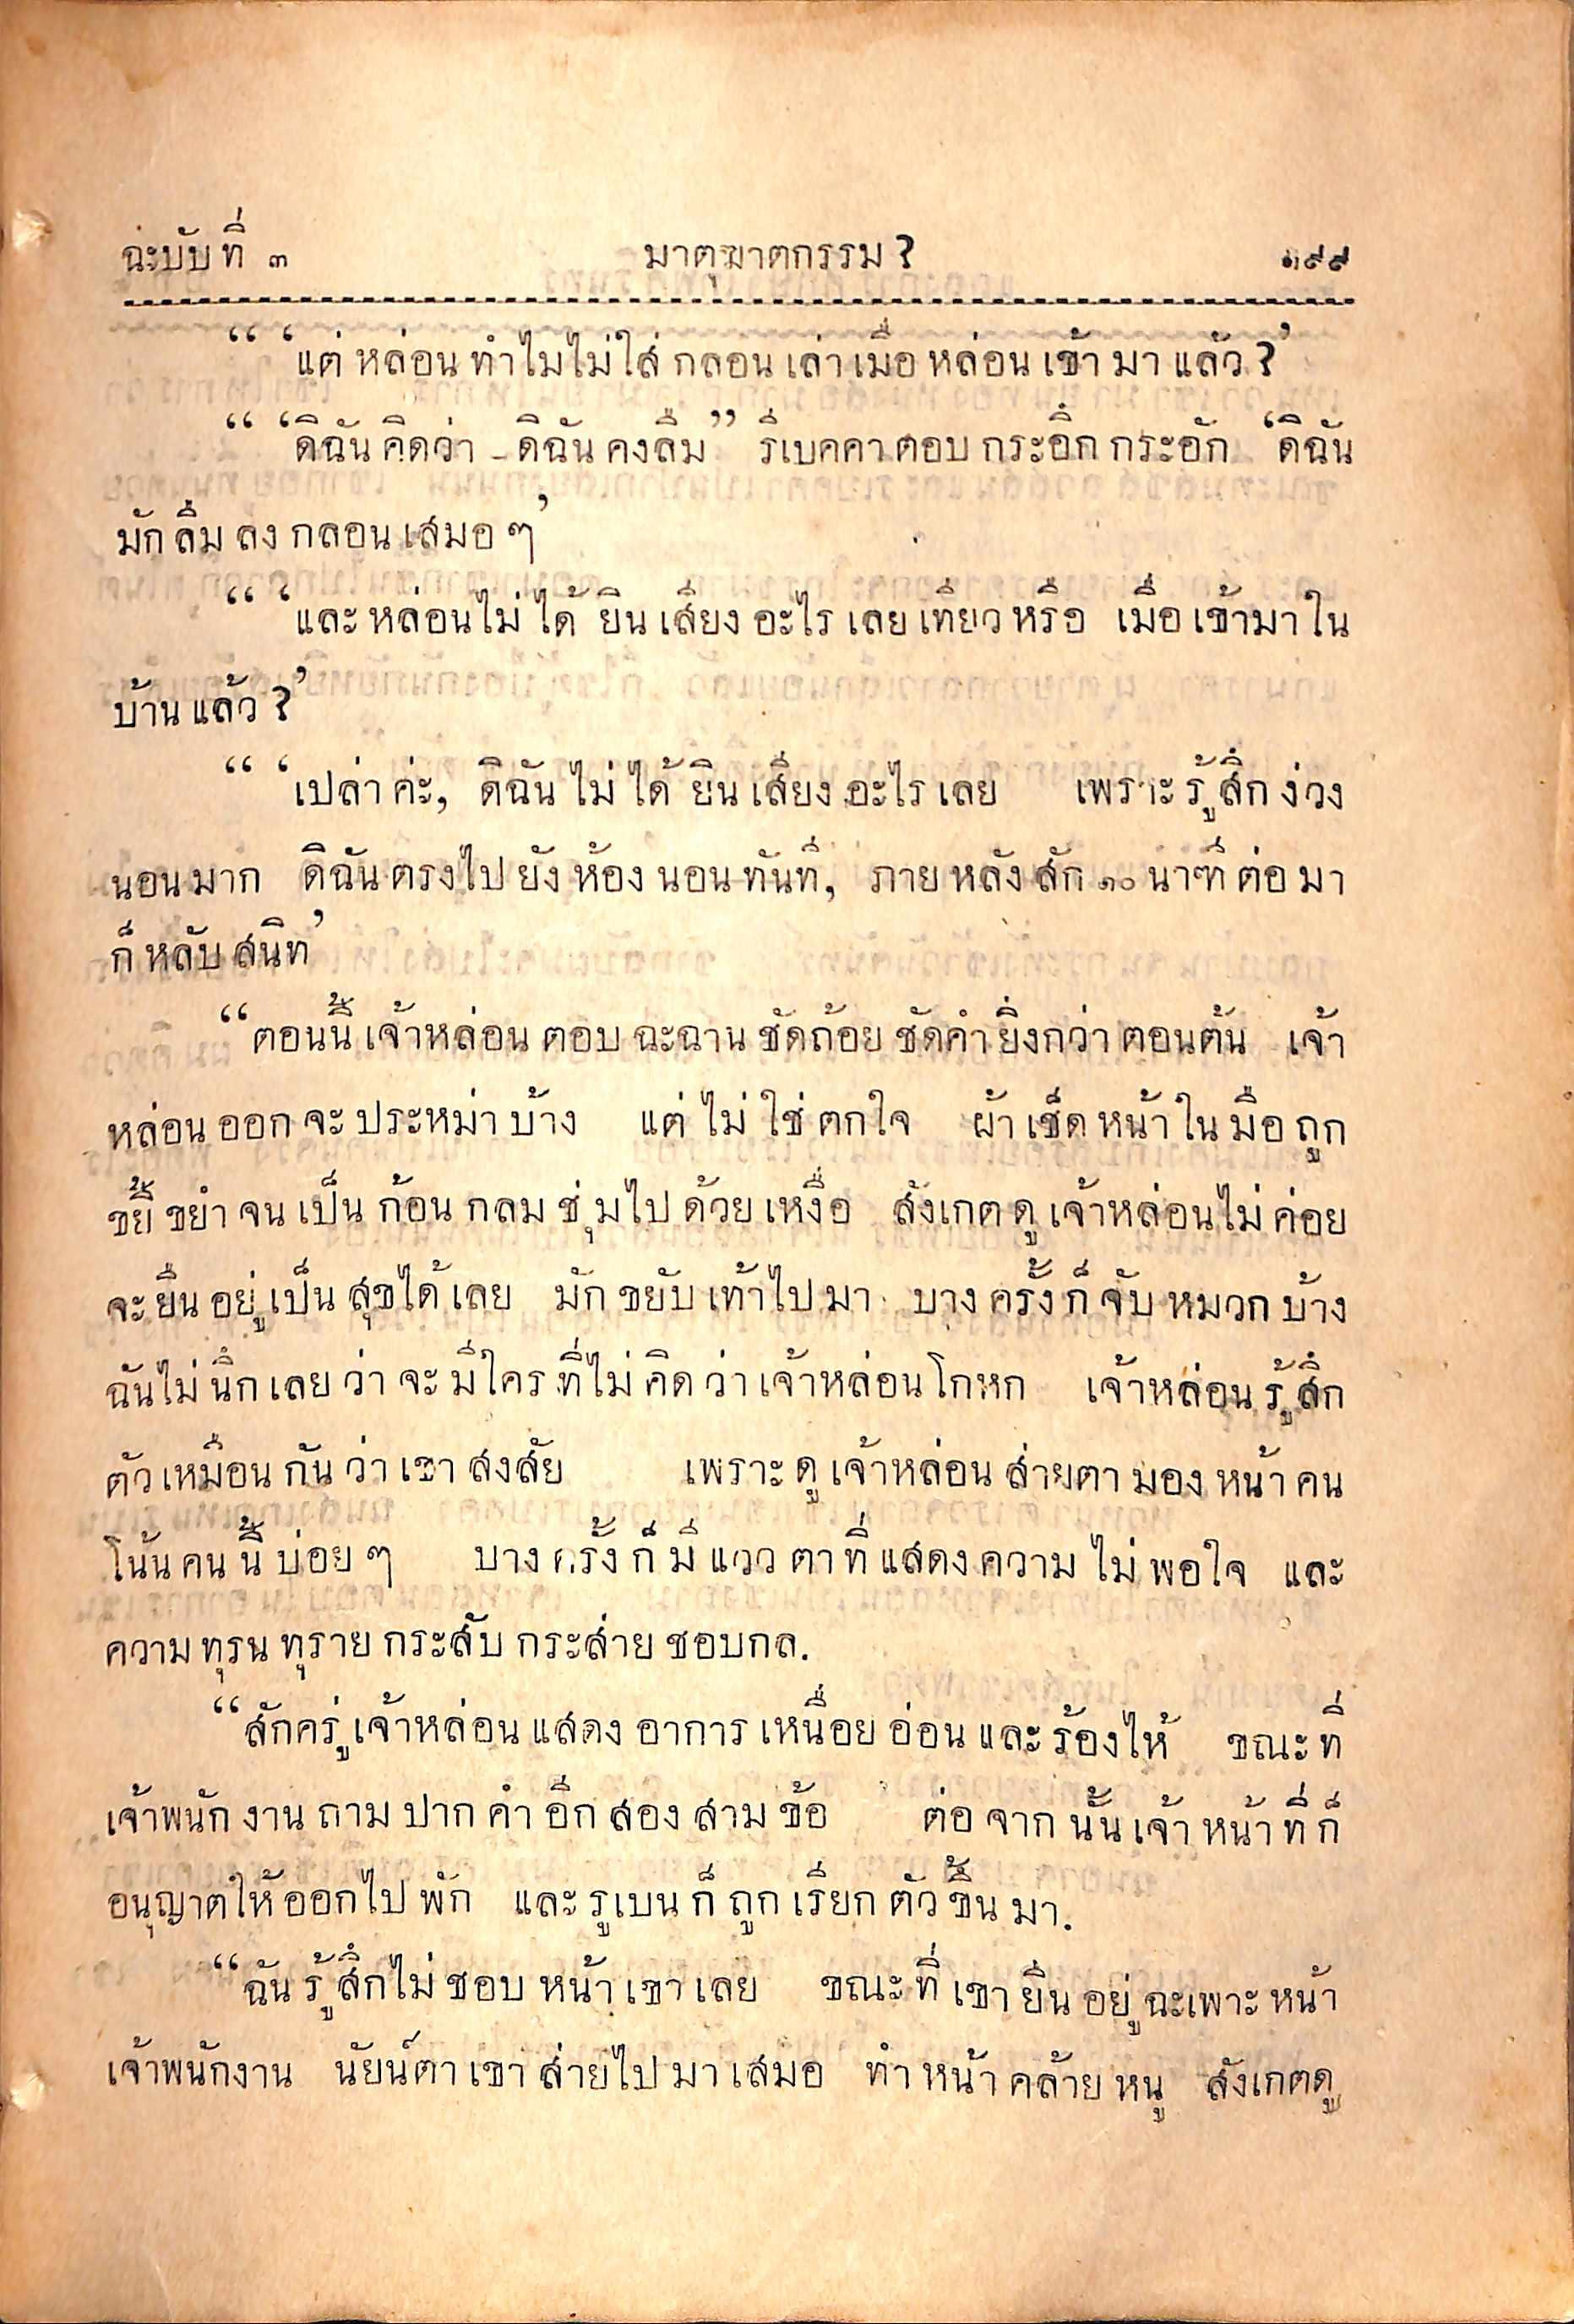 ฉะบับที่ ๓ มาตุฆาตกรรม? ๑๙๙
“ ‘แต่หล่อนทำไมไม่ใส่กลอนเล่าเมื่อหล่อนเข้ามาแล้ว?’
“ ‘ดิฉันคิดว่า – ดิฉันคงลืม” รีเบคคาตอบกระอึกกระอัก ‘ดิฉัน
มักลืมลงกลอนเสมอๆ’
“ ‘และหล่อนไม่ได้ยินเสียงอะไรเลยเทียวหรือ เมื่อเข้ามาใน
บ้านแล้ว?’
“ ‘เปล่าค่ะ, ดิฉันไม่ได้ยินเสียงอะไรเลย เพราะรู้สึกง่วง
นอนมาก ดิฉันตรงไปยังห้องนอนทันที, ภายหลังสัก ๑๐ นาฑีต่อมา
ก็หลับสนิท’
“ตอนนี้เจ้าหล่อนตอบฉะฉานชัดถ้อยชัดคำยิ่งกว่าตอนต้น เจ้า
หล่อนออกจะประหม่าบ้าง แต่ไม่ใช่ตกใจ ผ้าเช็ดหน้าในมือถูก
ขยี้ขยำจนเป็นก้อนกลมชุ่มไปด้วยเหงื่อ สังเกตดูเจ้าหล่อนไม่ค่อย
จะยืนอยู่เป็นสุขได้เลย มักขยับเท้าไปมา บางครั้งก็จับหมวกบ้าง
ฉันไม่นึกเลยว่าจะมีใครที่ไม่คิดว่าเจ้าหล่อนโกหก เจ้าหล่อนรู้สึก
ตัวเหมือนกันว่าเขาสงสัย เพราะดูเจ้าหล่อนส่ายตามองหน้าคน
โน้นคนนี้บ่อยๆ บางครั้งก็มีแววตาที่แสดงความไม่พอใจ และ
ความทุรนทุรายกระสับกระส่ายชอบกล.
“สักครู่เจ้าหล่อนแสดงอาการเหนื่อยอ่อนและร้องไห้ ขณะที่
เจ้าพนักงานถามปากคำอีกสองสามข้อ ต่อจากนั้นเจ้าหน้าที่ก็
อนุญาตให้ออกไปพัก และรูเบนก็ถูกเรียกตัวขึ้นมา.
“ฉันรู้สึกไม่ชอบหน้าเขาเลย ขณะที่เขายืนอยู่ฉะเพาะหน้า
เจ้าพนักงาน นัยน์ตาเขาส่ายไปมาเสมอ ทำหน้าคล้ายหนู สังเกตดู